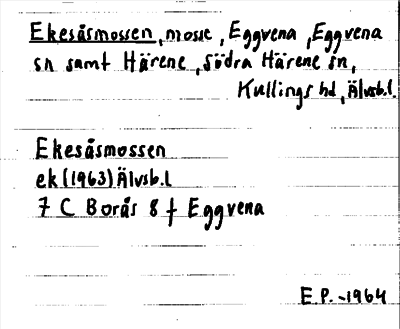 Ekesåsmossen, mosse, Eggvena, Eggvena
sn samt Härene, Södra Härene sn,
Kullings hd, Älvsb.l.
Ekesåsmossen
ek (1963) Älvsb.l
7 C Borås 8 f Eggvena
E.P. -1964